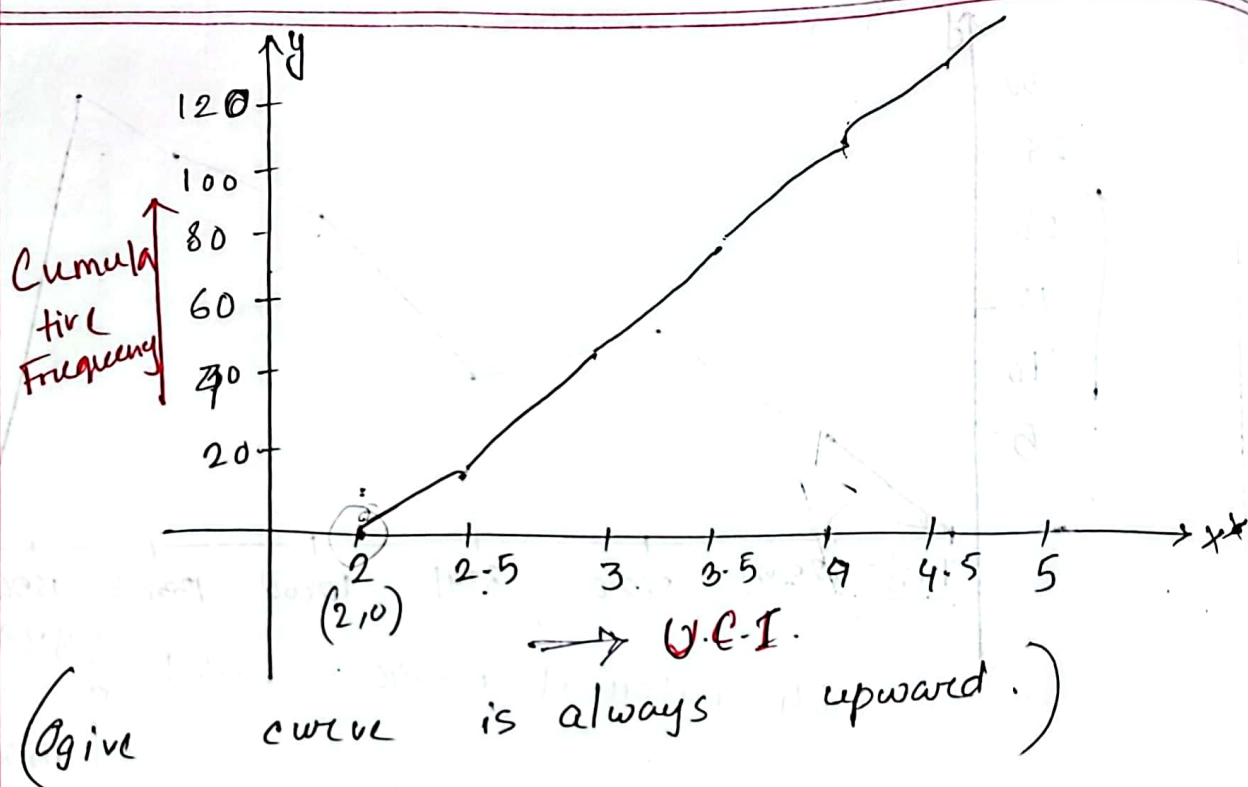 y
120
100
80
60
40
20
Cumula
tive
Frequency
2 2.5 3 3.5 4 4.5 5
x
(2,0)
U.C.I.
(Ogive curve is always upward.)